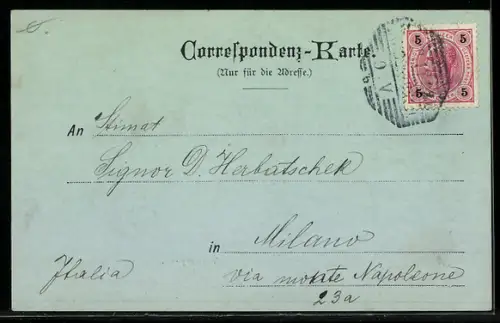 Correspondenz-Karte.
(Nur für die Adresse.)
5 5
5 5
An Stimat
Signor D. Herbatschek
in Milano
Italia via monte Napoleone
23a